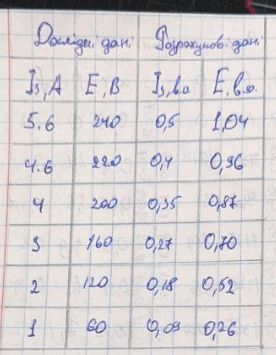 Дослідні дані Розрахункові дані
Iз, А E, В Iз, в.о. E, в.о.
5.6 240 0,5 1,04
4.6 220 0,4 0,96
4 200 0,35 0,87
3 160 0,27 0,70
2 120 0,18 0,52
1 60 0,09 0,26